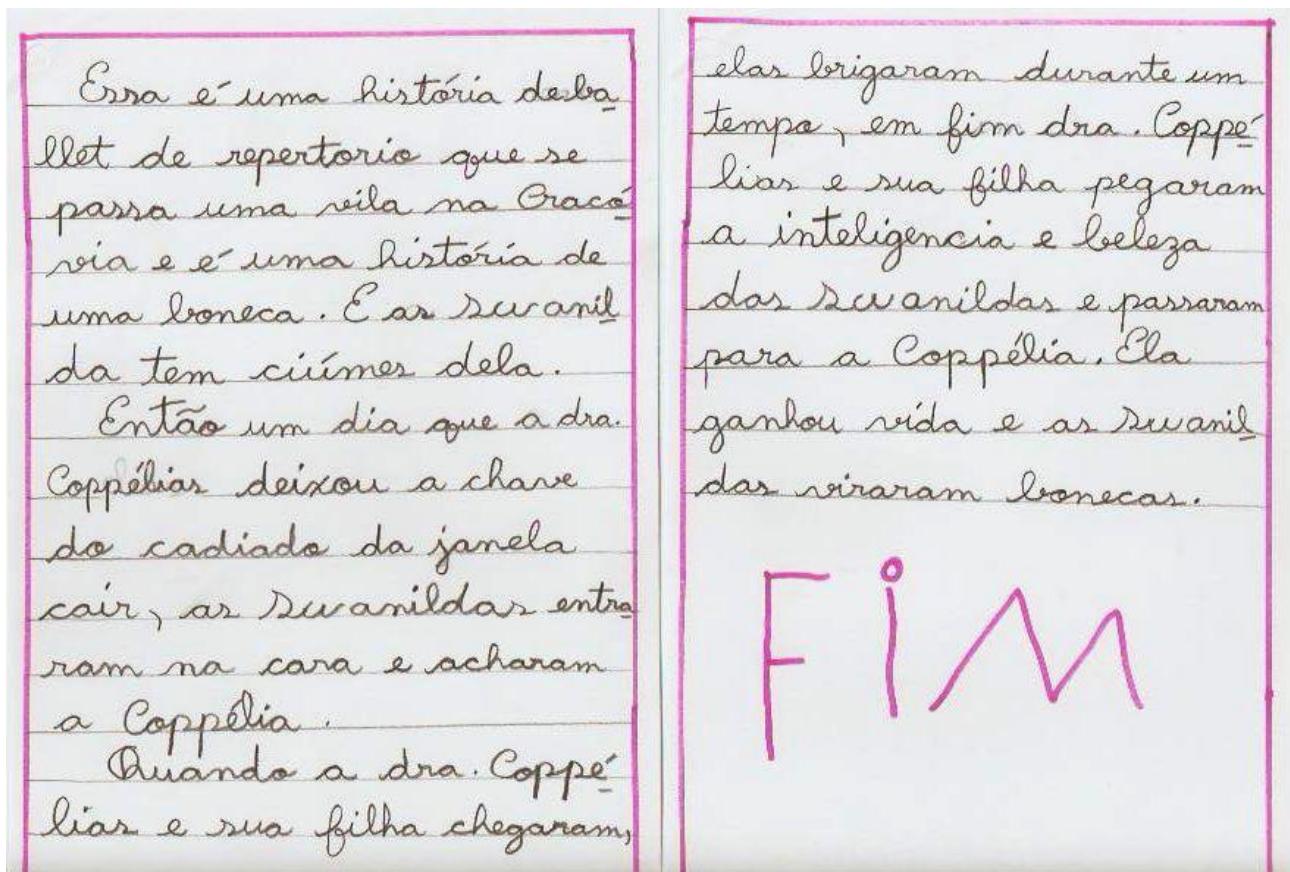 Essa é uma história de ba
llet de repertorio que se
passa uma vila na Cracó
via e é uma história de
uma boneca. E as Swanil
da tem ciúmes dela.
Então um dia que a dra.
Coppélias deixou a chave
do cadiado da janela
cair, as Swanildas entra
ram na casa e acharam
a Coppélia.
Quando a dra. Coppé
lias e sua filha chegaram,
elas brigaram durante um
tempo, em fim dra. Coppé
lias e sua filha pegaram
a inteligencia e beleza
das Swanildas e passaram
para a Coppélia. Ela
ganhou vida e as Swanil
das viraram bonecas.
FiM